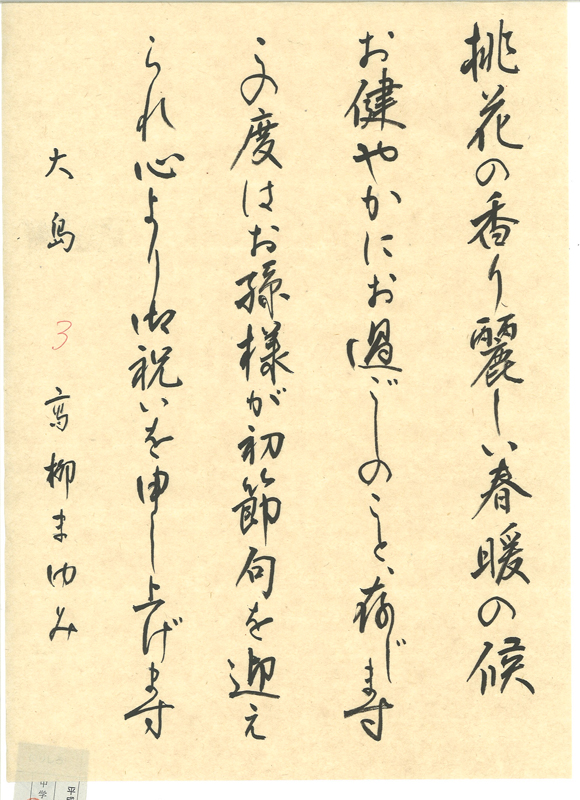 桃花の香り麗しい春暖の候
お健やかにお過ごしのことゝ存じます
この度はお孫様が初節句を迎え
られ心より御祝いを申し上げます
大島 3 高柳まゆみ
中学
平